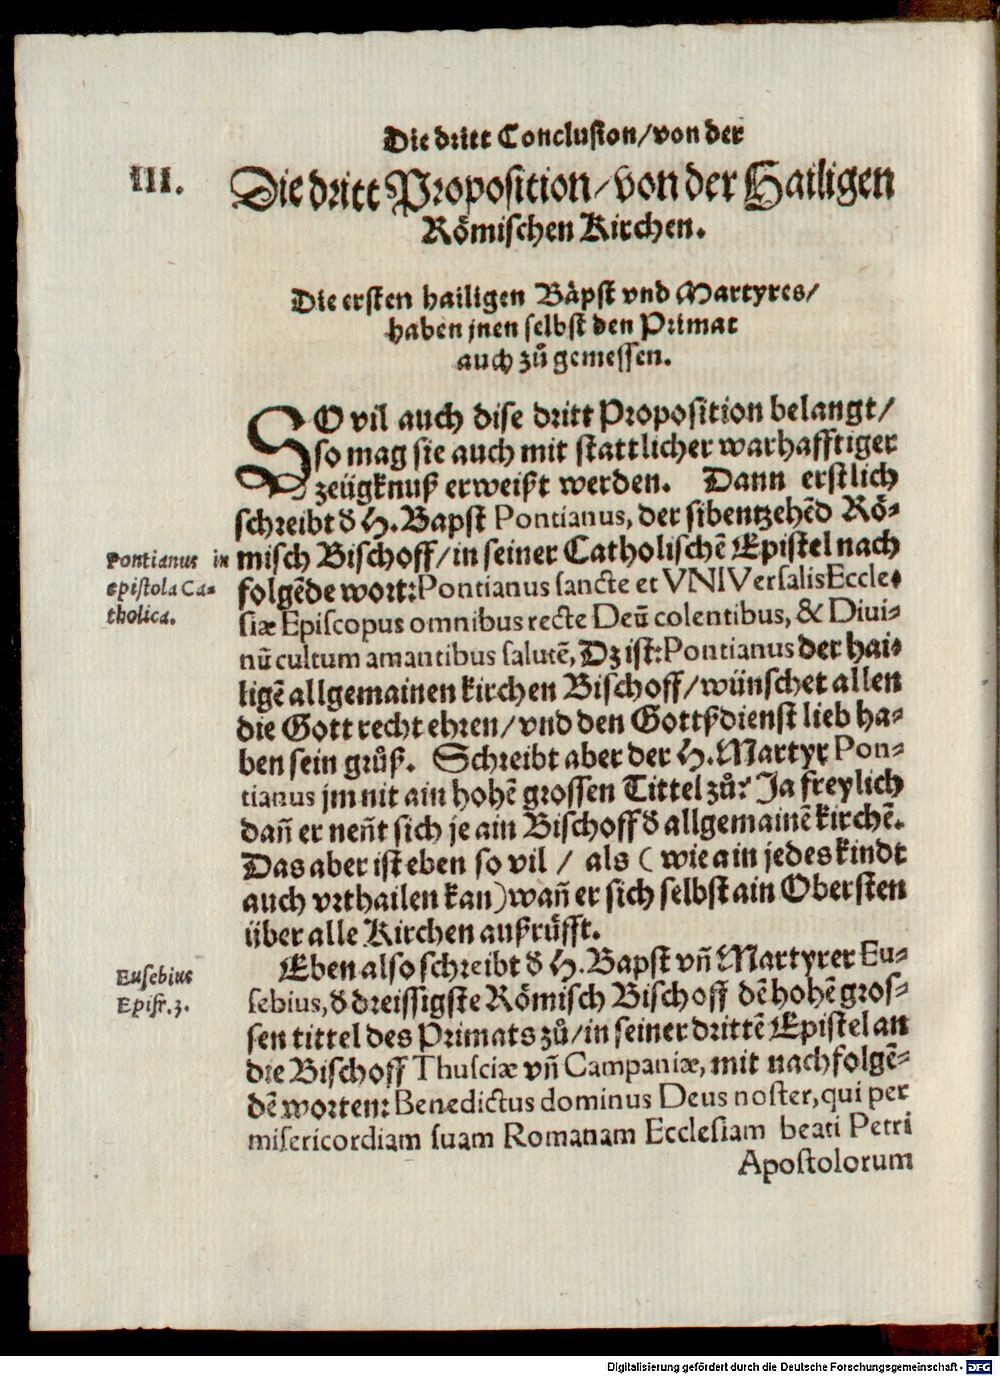 Die dritt Conclusion/von der
III.
Die dritt Proposition/von der Hailigen
Römischen Kirchen.
Die ersten hailigen Bäpst vnd Martyres/
haben jnen selbst den Primat
auch zů gemessen.
SO vil auch dise dritt Proposition belangt/
so mag sie auch mit stattlicher warhafftiger
zeügknuß erweißt werden. Dann erstlich
schreibt d̕ H. Bapst Pontianus, der sibentzehẽd Rö-
misch Bischoff/in seiner Catholischẽ Epistel nach
folgẽde wort: Pontianus sancte et VNIVersalis Eccle-
siæ Episcopus omnibus recte Deũ colentibus, & Diui-
nũ cultum amantibus salutẽ, Dz ist: Pontianus der hai-
ligẽ allgemainen kirchen Bischoff/wünschet allen
die Gott recht ehren/vnd den Gottßdienst lieb ha-
ben sein grůß. Schreibt aber der H. Martyr Pon-
tianus jm nit ain hohẽ grossen Tittel zů? Ja freylich
dañ er neñt sich je ain Bischoff d̕ allgemainẽ kirchẽ.
Das aber ist eben so vil / als ( wie ain jedes kindt
auch vrthailen kan) wañ er sich selbst ain Obersten
über alle Kirchen außrüfft.
Eben also schreibt d̕ H. Bapst vñ Martyrer Eu-
sebius, d̕ dreissigste Römisch Bischoff dẽ hohẽ gros-
sen tittel des Primats zů/in seiner drittẽ Epistel an
die Bischoff Thusciæ vñ Campaniæ, mit nachfolgẽ-
dẽ worten: Benedictus dominus Deus noster, qui per
misericordiam suam Romanam Ecclesiam beati Petri
Apostolorum
Pontianus in
epistola Ca-
tholica.
Eusebius
Epist. 3.
Digitalisierung gefördert durch die Deutsche Forschungsgemeinschaft - DFG